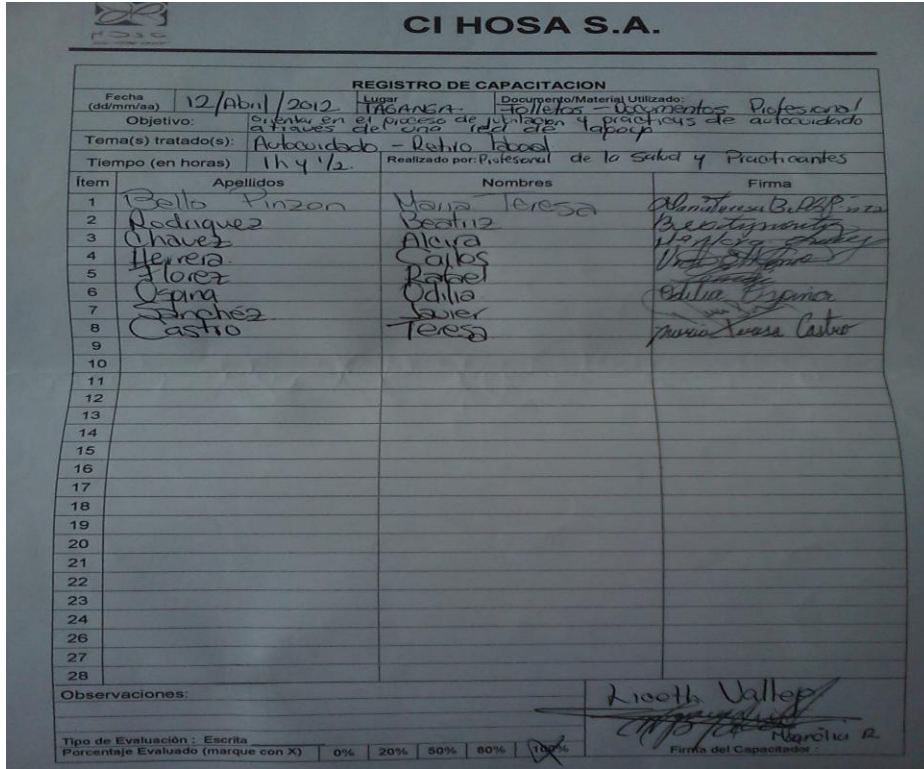 HOSA
CI HOSA S.A.
REGISTRO DE CAPACITACION
Fecha (dd/mm/aa) 12/Abril/2012 Lugar TAGANGA Documento/Material Utilizado: Folletos - Documentos Profesional
Objetivo: Orientar en el proceso de jubilacion y practicas de autocuidado
atraves de una red de apoyo
Tema(s) tratado(s): Autocuidado - Retiro laboral
Tiempo (en horas) 1h y 1/2 Realizado por: Profesional de la Salud y Practicantes
Ítem Apellidos Nombres Firma
1 Bello Pinzon Maria Teresa
2 Rodriguez Beatriz
3 Chavez Alcira
4 Herrera Carlos
5 Florez Rafael
6 Ospina Odilia Odilia Ospina
7 Sanchéz Javier
8 Castro Teresa Maria Teresa Castro
9
10
11
12
13
14
15
16
17
18
19
20
21
22
23
24
26
27
28
Observaciones:
Liceth Vallejo
Magnolia R
Tipo de Evaluación : Escrita
Porcentaje Evaluado (marque con X) 0% 20% 50% 80% 100% Firma del Capacitador :